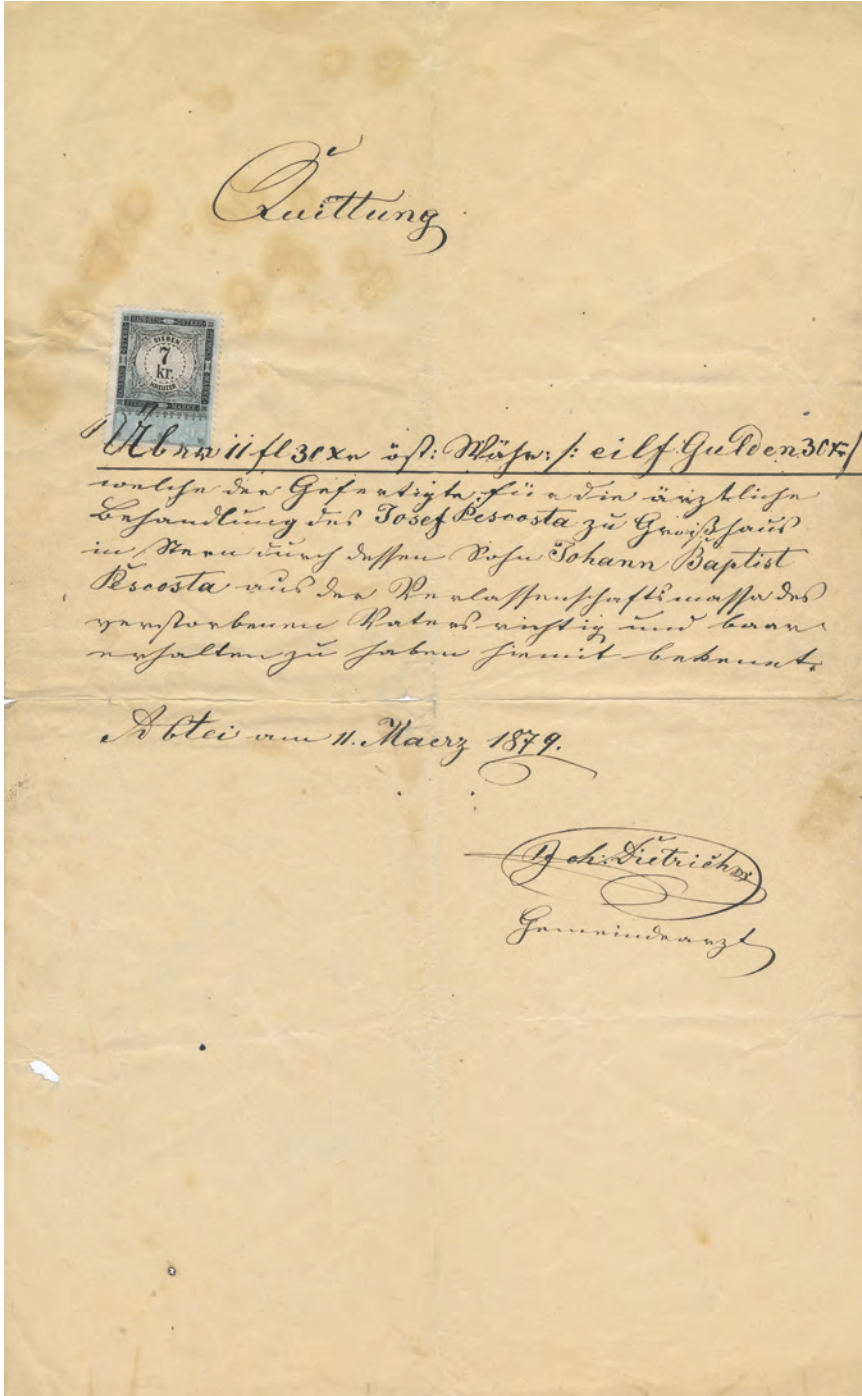 Quittung
SIEBEN
7
kr.
KREUZER
Über 11 fl 30 xr öst: Währ: /: eilf Gulden 30 xr /
welche der Gefertigte für die ärztliche
Behandlung des Josef Pescosta zu Großhaus
in Stern durch dessen Sohn Johann Baptist
Pescosta aus der Verlassenschaftsmassa des
verstorbenen Vaters richtig und baar
erhalten zu haben hiemit bekennt.
Abtei am 11. Maerz 1879.
Joh. Dietrich
Gemeindearzt